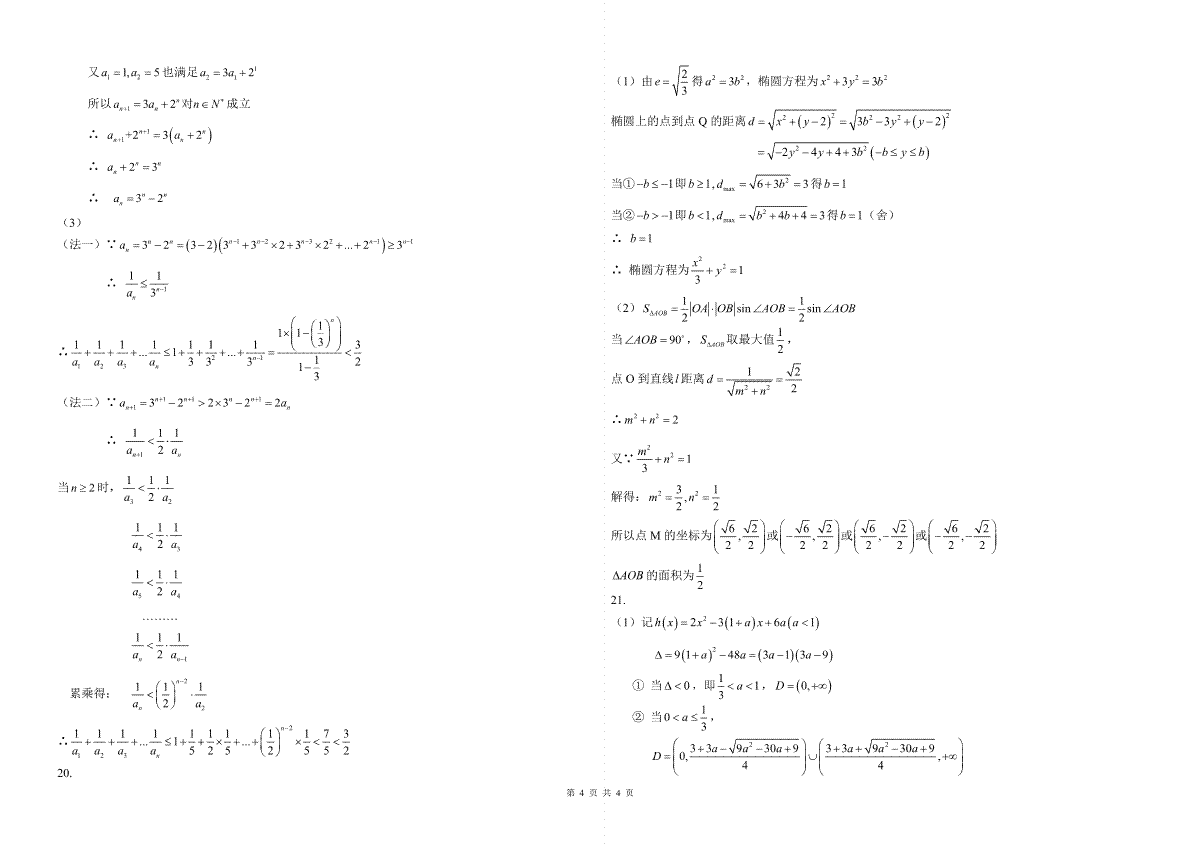 又a₁ = 1, a₂ = 5也满足a₂ = 3a₁ + 2¹
所以aₙ₊₁ = 3aₙ + 2ⁿ对n ∈ N*成立
∴ aₙ₊₁+2ⁿ⁺¹ = 3(aₙ + 2ⁿ)
∴ aₙ + 2ⁿ = 3ⁿ
∴ aₙ = 3ⁿ − 2ⁿ
（3）
（法一）∵ aₙ = 3ⁿ − 2ⁿ = (3 − 2)(3ⁿ⁻¹ + 3ⁿ⁻² × 2 + 3ⁿ⁻³ × 2² + ... + 2ⁿ⁻¹) ≥ 3ⁿ⁻¹
∴ 1/aₙ ≤ 1/3ⁿ⁻¹
∴ 1/a₁ + 1/a₂ + 1/a₃ + ... 1/aₙ ≤ 1 + 1/3 + 1/3² + ... + 1/3ⁿ⁻¹ = (1×(1 − (1/3)ⁿ))/(1 − 1/3) < 3/2
（法二）∵ aₙ₊₁ = 3ⁿ⁺¹ − 2ⁿ⁺¹ > 2 × 3ⁿ − 2ⁿ⁺¹ = 2aₙ
∴ 1/aₙ₊₁ < 1/2 · 1/aₙ
当n ≥ 2时，1/a₃ < 1/2 · 1/a₂
1/a₄ < 1/2 · 1/a₃
1/a₅ < 1/2 · 1/a₄
………
1/aₙ < 1/2 · 1/aₙ₋₁
累乘得： 1/aₙ < (1/2)ⁿ⁻² · 1/a₂
∴ 1/a₁ + 1/a₂ + 1/a₃ + ... 1/aₙ ≤ 1 + 1/5 + 1/2 × 1/5 + ... + (1/2)ⁿ⁻² × 1/5 < 7/5 < 3/2
20.
（1）由e = √(2/3) 得a² = 3b²，椭圆方程为x² + 3y² = 3b²
椭圆上的点到点 Q 的距离d = √(x² + (y − 2)²) = √(3b² − 3y² + (y − 2)²)
= √(−2y² − 4y + 4 + 3b²) (−b ≤ y ≤ b)
当①−b ≤ −1即b ≥ 1, dₘₐₓ = √(6 + 3b²) = 3得b = 1
当②−b > −1即b < 1, dₘₐₓ = √(b² + 4b + 4) = 3得b = 1（舍）
∴ b = 1
∴ 椭圆方程为x²/3 + y² = 1
（2）S_ΔAOB = 1/2 |OA| · |OB| sin ∠AOB = 1/2 sin ∠AOB
当∠AOB = 90°，S_ΔAOB取最大值1/2，
点 O 到直线l距离d = 1/√(m² + n²) = √2/2
∴ m² + n² = 2
又∵ m²/3 + n² = 1
解得：m² = 3/2, n² = 1/2
所以点 M 的坐标为(√6/2, √2/2)或(−√6/2, √2/2)或(√6/2, −√2/2)或(−√6/2, −√2/2)
ΔAOB的面积为1/2
21.
（1）记h(x) = 2x² − 3(1 + a)x + 6a(a < 1)
Δ = 9(1 + a)² − 48a = (3a − 1)(3a − 9)
① 当Δ < 0，即1/3 < a < 1，D = (0, +∞)
② 当0 < a ≤ 1/3，
D = (0, (3 + 3a − √(9a² − 30a + 9))/4) ∪ ((3 + 3a + √(9a² − 30a + 9))/4, +∞)
第 4 页 共 4 页